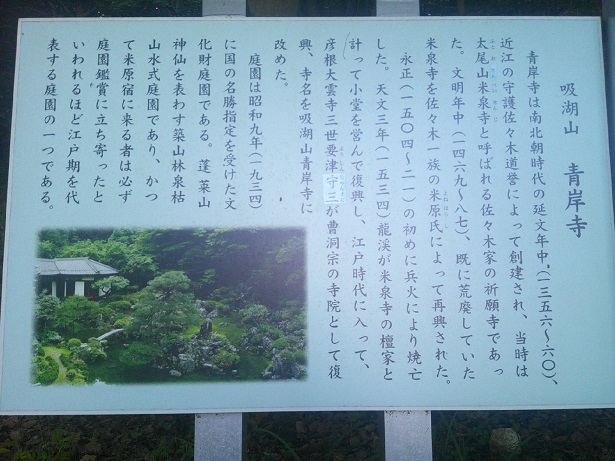 吸湖山　青岸寺
青岸寺は南北朝時代の延文年中、(一三五六〜六〇)、
近江の守護佐々木道誉によって創建され、当時は
太尾山米泉寺と呼ばれる佐々木家の祈願寺であっ
た。文明年中(一四六九〜八七)、既に荒廃していた
米泉寺を佐々木一族の米原氏によって再興された。
永正(一五〇四〜二一)の初めに兵火により焼亡
した。天文三年(一五三四)龍渓が米泉寺の檀家と
計って小堂を営んで復興し、江戸時代に入って、
彦根大雲寺三世要津守三が曹洞宗の寺院として復
興、寺名を吸湖山青岸寺に
改めた。
庭園は昭和九年(一九三四)
に国の名勝指定を受けた文
化財庭園である。蓬莱山
神仙を表わす築山林泉枯
山水式庭園であり、かつ
て米原宿に来る者は必ず
庭園鑑賞に立ち寄ったと
いわれるほど江戸期を代
表する庭園の一つである。